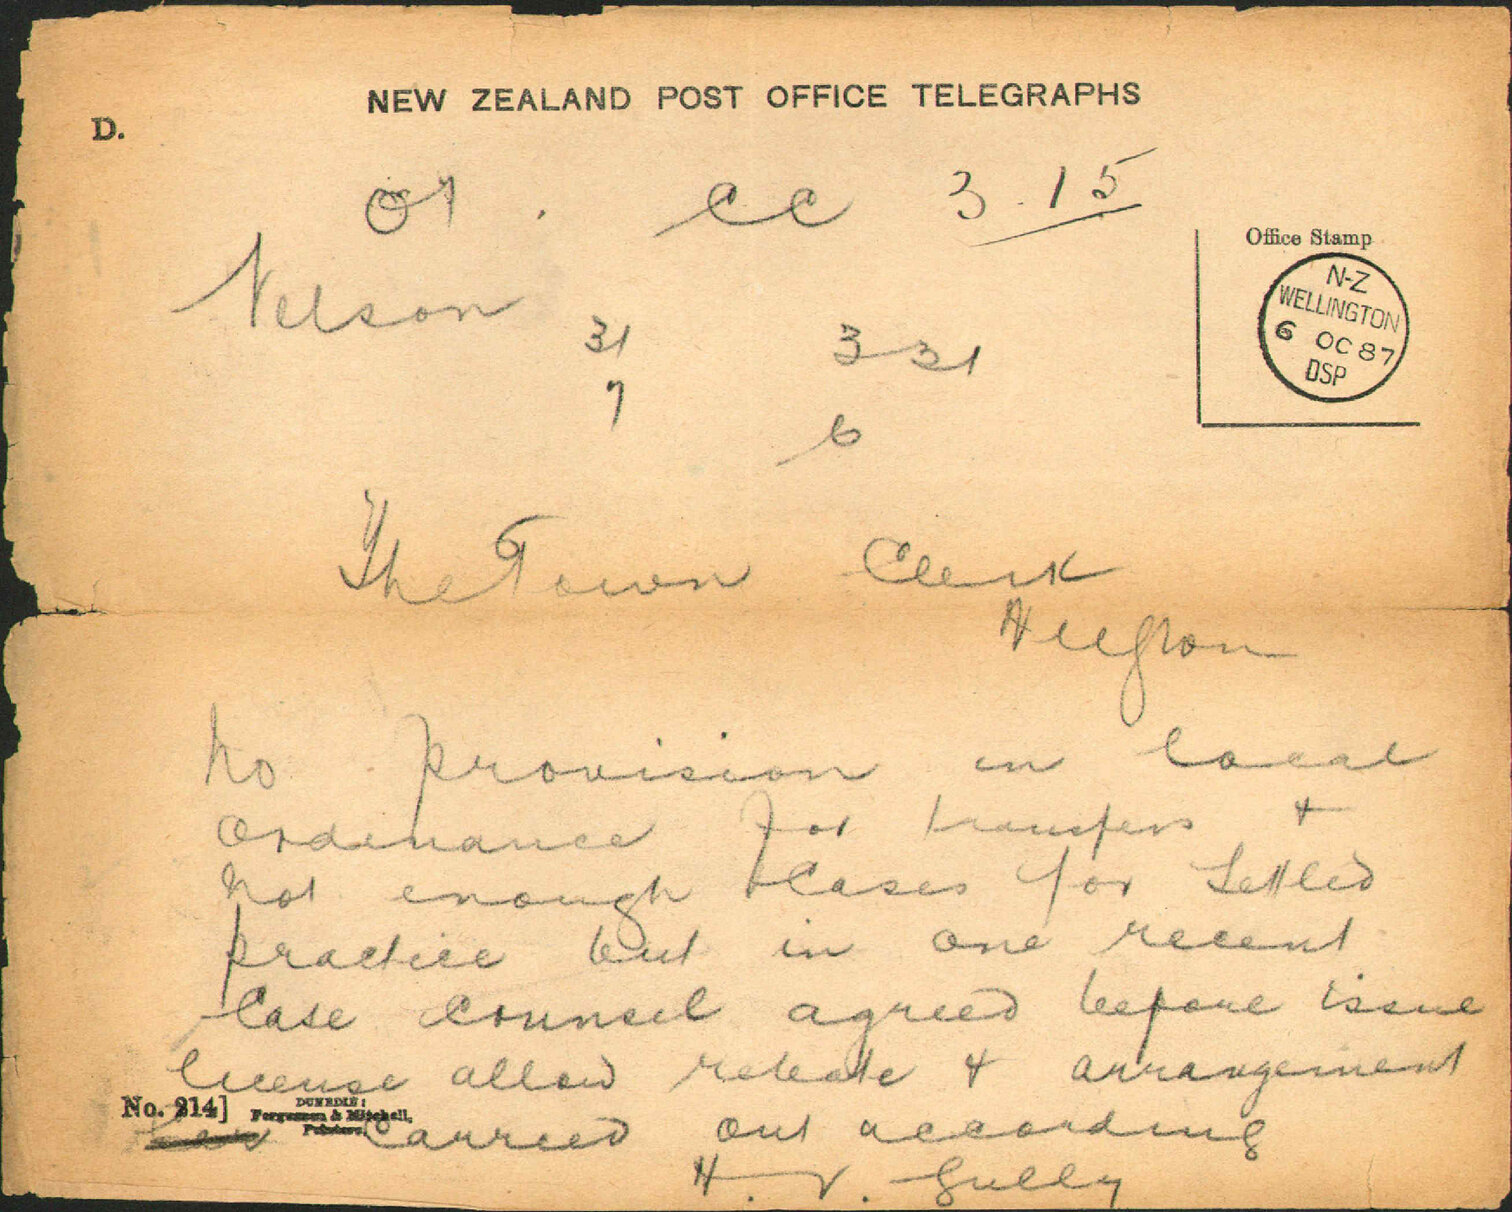 NEW ZEALAND POST OFFICE TELEGRAPHS
D.
CC 3.15
Office Stamp
N-Z
WELLINGTON
6 OC 87
DSP
Nelson
31 3 31
7 6
The Town Clerk
No provision in local
Ordinance for transfers +
not enough Cases for Settled
practice but in one recent
Case Counsel agreed before issue
license allow rebate + arrangement
No. 214] DUNEDIN:
Fergusson & Mitchell,
Printers.
Carried out according
H. V. Gully